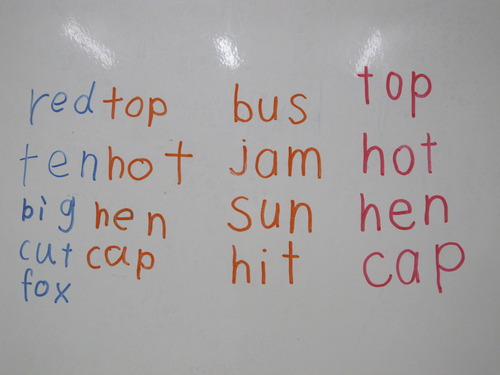 red top bus top
ten hot jam hot
big hen sun hen
cut cap hit cap
fox